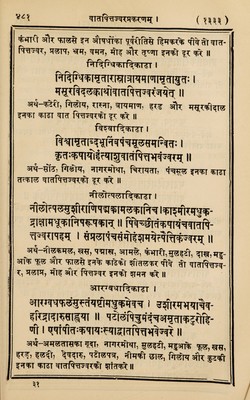 ४८१ वातपित्तज्वरप्रकरणम् । (१३३३)
कंभारी और फालसे इन औषधोंका पूर्वरीतिसे हिमकरके पीवे तौ वात-
पित्तज्वर, प्रलाप, श्रम, वमन, मोह और तृषा इनको दूर करे ॥
निदिग्धिकादिकाढा ।
निदिग्धिकामृतारास्नात्रायमाणामृतायुतः ।
मसूरविदलकाथोवातपित्तज्वरंजयेत् ॥
अर्थ–कटेरी, गिलोय, रास्ना, त्रायमाण, हरड और मसूरकीदाल
इनका काढा वात पित्तज्वरको दूर करे ॥
विश्वादिकाढा ।
विश्वामृताब्दभूनिंबपंचमूलसमन्वितः ।
कृतःकषायोहंत्याशुवातपित्तभवंज्वरम् ॥
अर्थ–सोंठ, गिलोय, नागरमोथा, चिरायता, पंचमूल इनका काढा
तत्काल वातपित्तज्वरको दूर करे ॥
नीलोत्पलादिकाढा ।
नीलोत्पलमुशीराणिपद्मकामलकानिच।काश्मीरमधुक-
द्राक्षामधूकानिपरूषकान् ॥ पिबेच्छीतंकषायंचवातपि-
त्तज्वरापहम् । संप्रलापंचसंमोहंशमयेत्पैत्तिकंज्वरम् ॥
अर्थ–नीलकमल, खस, पद्माख, आमले, कंभारी, मुलहटी, दाख, महु-
आके फूल और फालसे इनके काढेको शीतलकर पीवे तौ वातपित्तज्व-
र, प्रलाप, मोह और पित्तज्वर इनको शमन करे ॥
आरग्वधादिकाढा ।
आरग्वधफलंमुस्तंयष्टीमधुकमेवच । उशीरमभयाचैव-
हरिद्रादारुसाह्वया ॥ पटोलंपिचुमंदंचअमृताकटुरोहि-
णी । एषांपीतःकषायःस्याद्वातपित्तभवेज्वरे ॥
अर्थ–अमलतासका गूदा, नागरमोथा, मुलहटी, महुआके फूल, खस,
हरड, हलदी, देवदारु, पटोलपत्र, नीमकी छाल, गिलोय और कुटकी
इनका काढा वातपित्तज्वरको शांतकरे ॥
३१